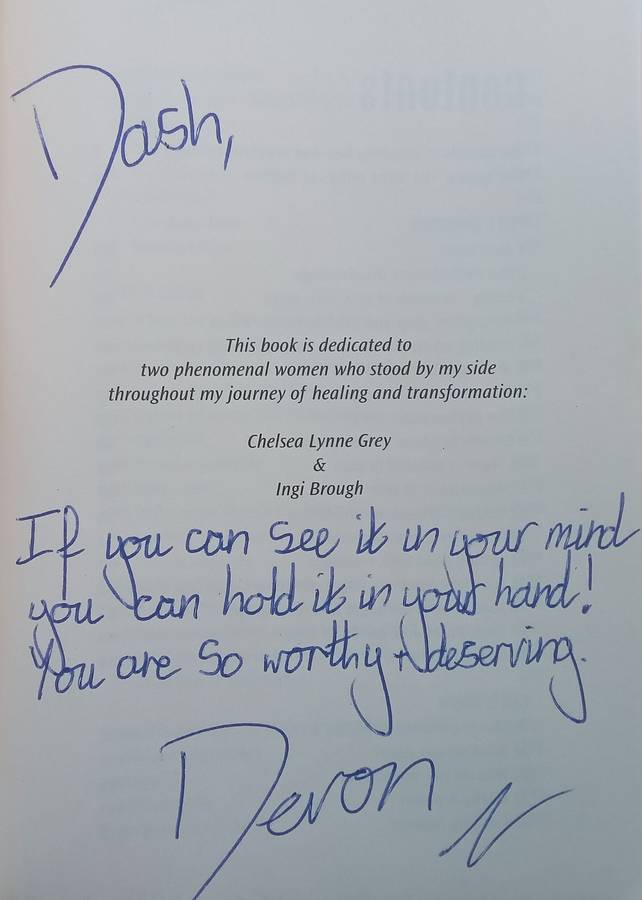 Dash,
This book is dedicated to
two phenomenal women who stood by my side
throughout my journey of healing and transformation:
Chelsea Lynne Grey
&
Ingi Brough
If you can see it in your mind
you can hold it in your hand!
You are so worthy + deserving.
Devon